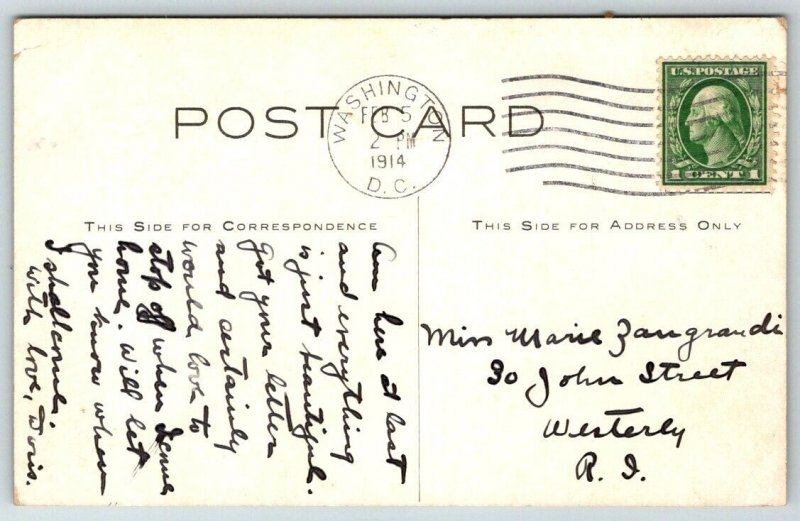 POST CARD
WASHINGTON
FEB 5
2 PM
1914
D.C.
U.S. POSTAGE
1 CENT 1
THIS SIDE FOR CORRESPONDENCE
THIS SIDE FOR ADDRESS ONLY
Am here at last
and everything
is just beautiful.
Got your letter
and certainly
would love to
stop off when I come
home. Will let
you know when
I shall come.
With love, Doris.
Miss Marie Zangrandi
30 John Street
Westerly
R. I.